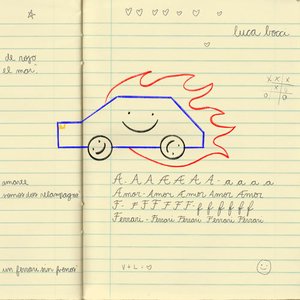 A
luca bocci
de rojo
el mar.
x x x
x
0 0
amarte
somos dos relampagos
A. A A Æ Æ A A · a a a a
Amor · Amor Amor Amor Amor Amor
F · F F F F F F · f f f f f f
Ferrari · Ferrari Ferrari Ferrari Ferrari
un ferrari sin frenos
V + L =